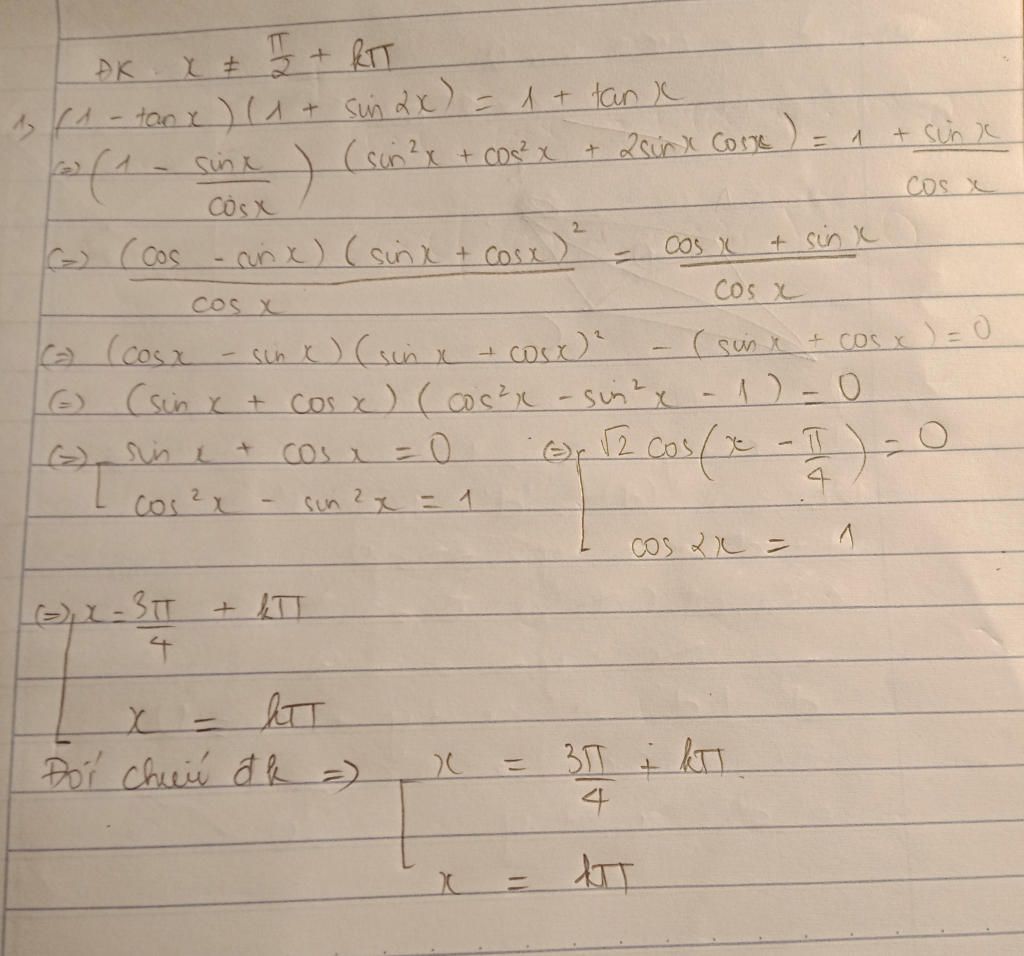 ĐK. x ≠ π/2 + kπ
1, (1 - tan x)(1 + sin 2x) = 1 + tan x
(=) (1 - sin x/cos x) (sin²x + cos²x + 2sin x cos x) = 1 + sin x/cos x
(=) (cos - sin x)(sin x + cos x)²/cos x = cos x + sin x/cos x
(=) (cos x - sin x)(sin x + cos x)² - (sin x + cos x) = 0
(=) (sin x + cos x)(cos²x - sin²x - 1) = 0
(=) [ sin x + cos x = 0 (=) [ √2 cos(x - π/4) = 0
cos²x - sin²x = 1
cos 2x = 1
(=) [ x = 3π/4 + kπ
x = kπ
Đối chiếu đk => [ x = 3π/4 + kπ.
x = kπ